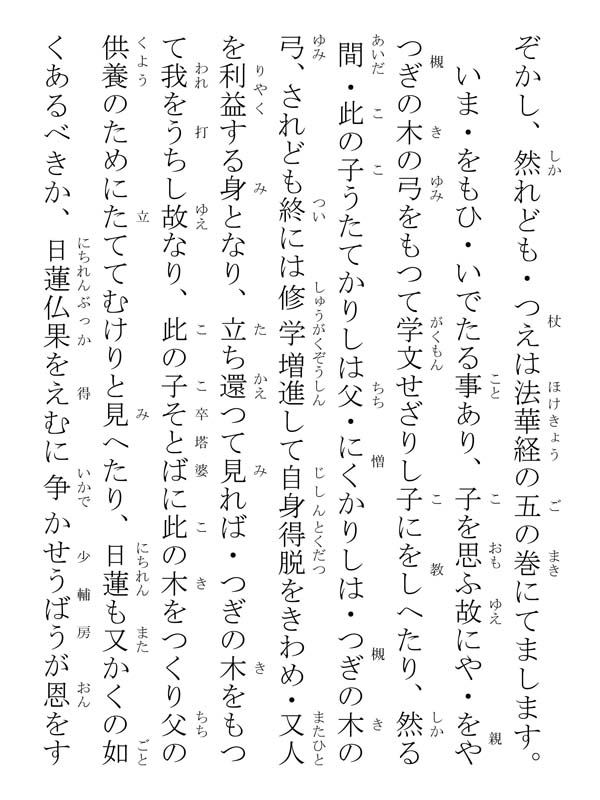 ぞかし、然れども・つえは法華経の五の巻にてまします。
いま・をもひ・いでたる事あり、子を思ふ故にや・をや
つぎの木の弓をもつて学文せざりし子にをしへたり、然る
間・此の子うたてかりしは父・にくかりしは・つぎの木の
弓、されども終には修学増進して自身得脱をきわめ・又人
を利益する身となり、立ち還つて見れば・つぎの木をもつ
て我をうちし故なり、此の子そとばに此の木をつくり父の
供養のためにたててむけりと見へたり、日蓮も又かくの如
くあるべきか、日蓮仏果をえむに争かせうばうが恩をす